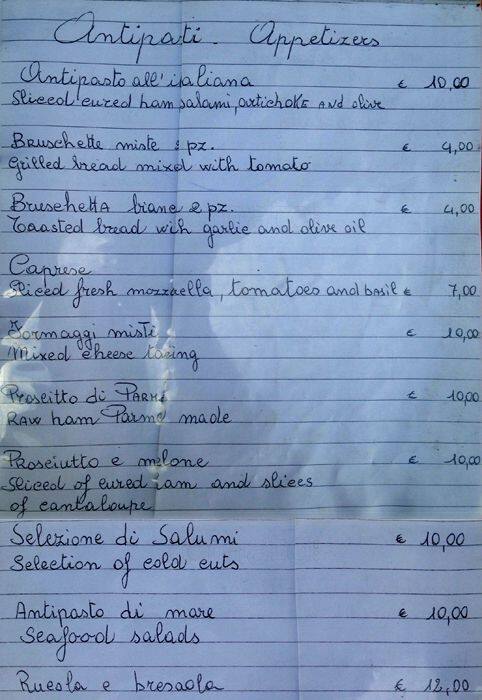 Antipati. Appetizers
Antipasto all'italiana € 10,00
Sliced cured ham salami, artichoke and olive
Bruschette miste 2 pz. € 4,00
Grilled bread mixed with tomato
Bruschetta biane 2 pz. € 4,00
Toasted bread wich garlic and olive oil
Caprese
Sliced fresh mozzaella, tomatoes and basil € 7,00
Formaggi misti € 10,00
Mixed cheese tasing
Proscitto di Parma € 10,00
Raw ham Parma made
Prosciutto e melone € 10,00
Sliced of cured jam and slices
of cantaloupe
Selezione di Salumi € 10,00
Selection of cold cuts
Antipasto di mare € 10,00
Seafood salads
Rucola e bresaola € 12,00